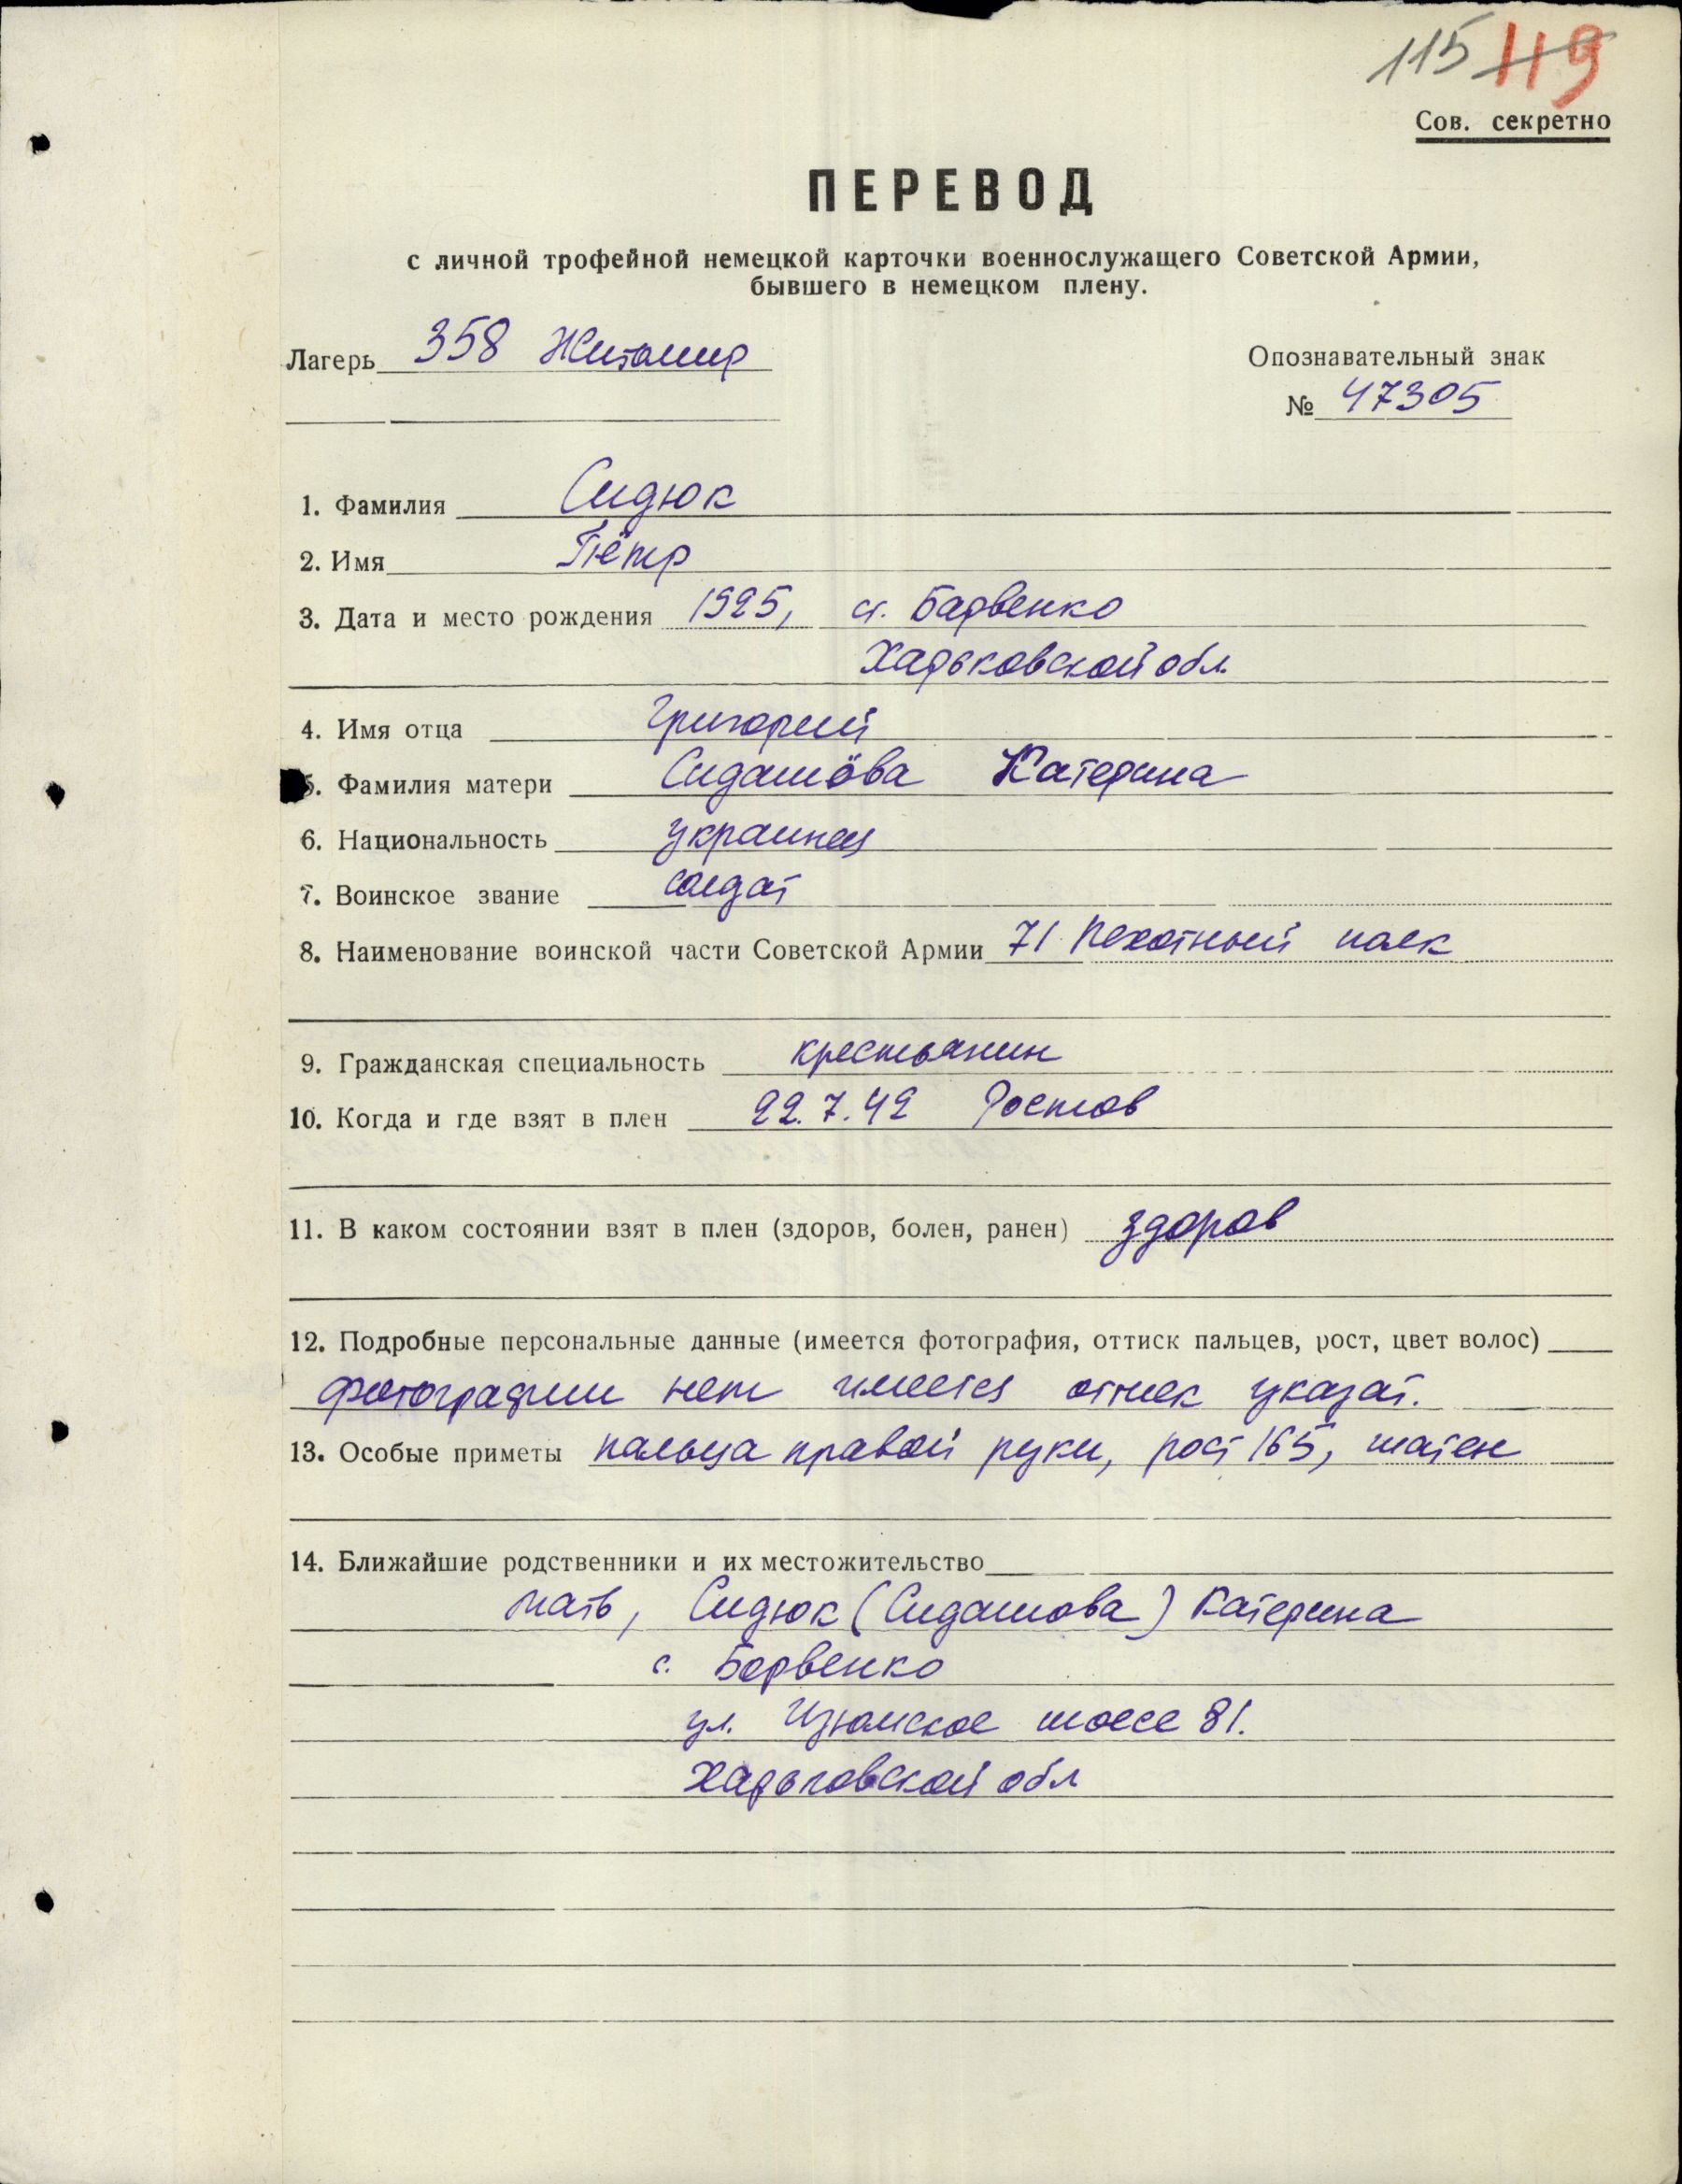 115 119
Сов. секретно
ПЕРЕВОД
с личной трофейной немецкой карточки военнослужащего Советской Армии,
бывшего в немецком плену.
Лагерь 358 Житомир
Опознавательный знак
№ 47305
1. Фамилия Сидюк
2. Имя Пётр
3. Дата и место рождения 1925, ст. Барвенко
Харьковской обл.
4. Имя отца Григорий
5. Фамилия матери Сидашова Катерина
6. Национальность украинец
7. Воинское звание солдат
8. Наименование воинской части Советской Армии 71 Пехотный полк
9. Гражданская специальность крестьянин
10. Когда и где взят в плен 22.7.42 Ростов
11. В каком состоянии взят в плен (здоров, болен, ранен) здоров
12. Подробные персональные данные (имеется фотография, оттиск пальцев, рост, цвет волос)
фотографии нет имеется оттиск указат.
13. Особые приметы пальца правой руки, рост 165, шатен
14. Ближайшие родственники и их местожительство
мать, Сидюк (Сидашова) Катерина
с. Борвенко
ул. Изюмское шоссе 81.
Харьковской обл